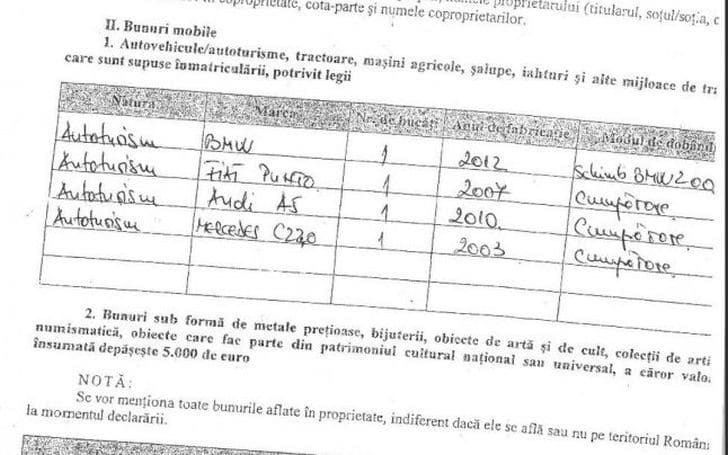 în coproprietate, cota-parte și numele coproprietarilor. proprietarului (titularul, soțul/soția, c
II. Bunuri mobile
1. Autovehicule/autoturisme, tractoare, mașini agricole, șalupe, iahturi și alte mijloace de tra
care sunt supuse înmatriculării, potrivit legii
Natura Marca Nr. de bucăți Anul de fabricație Modul de dobând
Autoturism BMW 1 2012 Schimb BMW 200
Autoturism FIAT PUNTO 1 2007 Cumpărare.
Autoturism Audi A5 1 2010 Cumpărare.
Autoturism MERCEDES C220 1 2003 Cumpărare.
2. Bunuri sub formă de metale prețioase, bijuterii, obiecte de artă și de cult, colecții de artă
numismatică, obiecte care fac parte din patrimoniul cultural național sau universal, a căror valo
însumată depășește 5.000 de euro
NOTĂ:
Se vor menționa toate bunurile aflate în proprietate, indiferent dacă ele se află sau nu pe teritoriul Român
la momentul declarării.